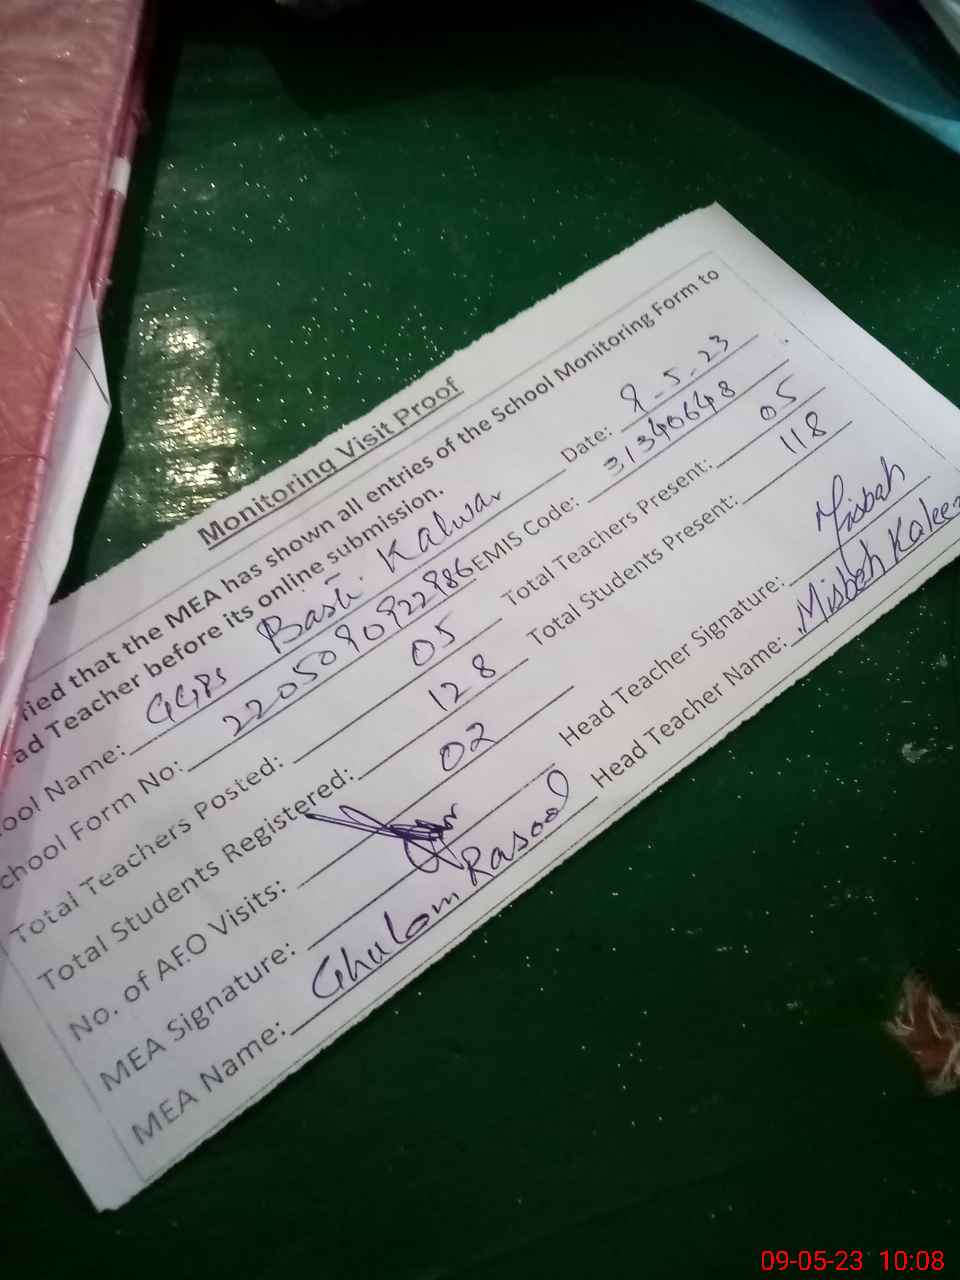 Monitoring Visit Proof
ried that the MEA has shown all entries of the School Monitoring Form to
ad Teacher before its online submission.
ool Name: GGPS Basti Kalwar Date: 9-5-23
chool Form No: EMIS Code: 31340648
Total Teachers Posted: 05 Total Teachers Present: 05
Total Students Registered: 128 Total Students Present: 118
No. of AEO Visits: 02
MEA Signature: Head Teacher Signature: Misbah
MEA Name: Ghulam Rasool Head Teacher Name: Misbah Kalee
09-05-23 10:08